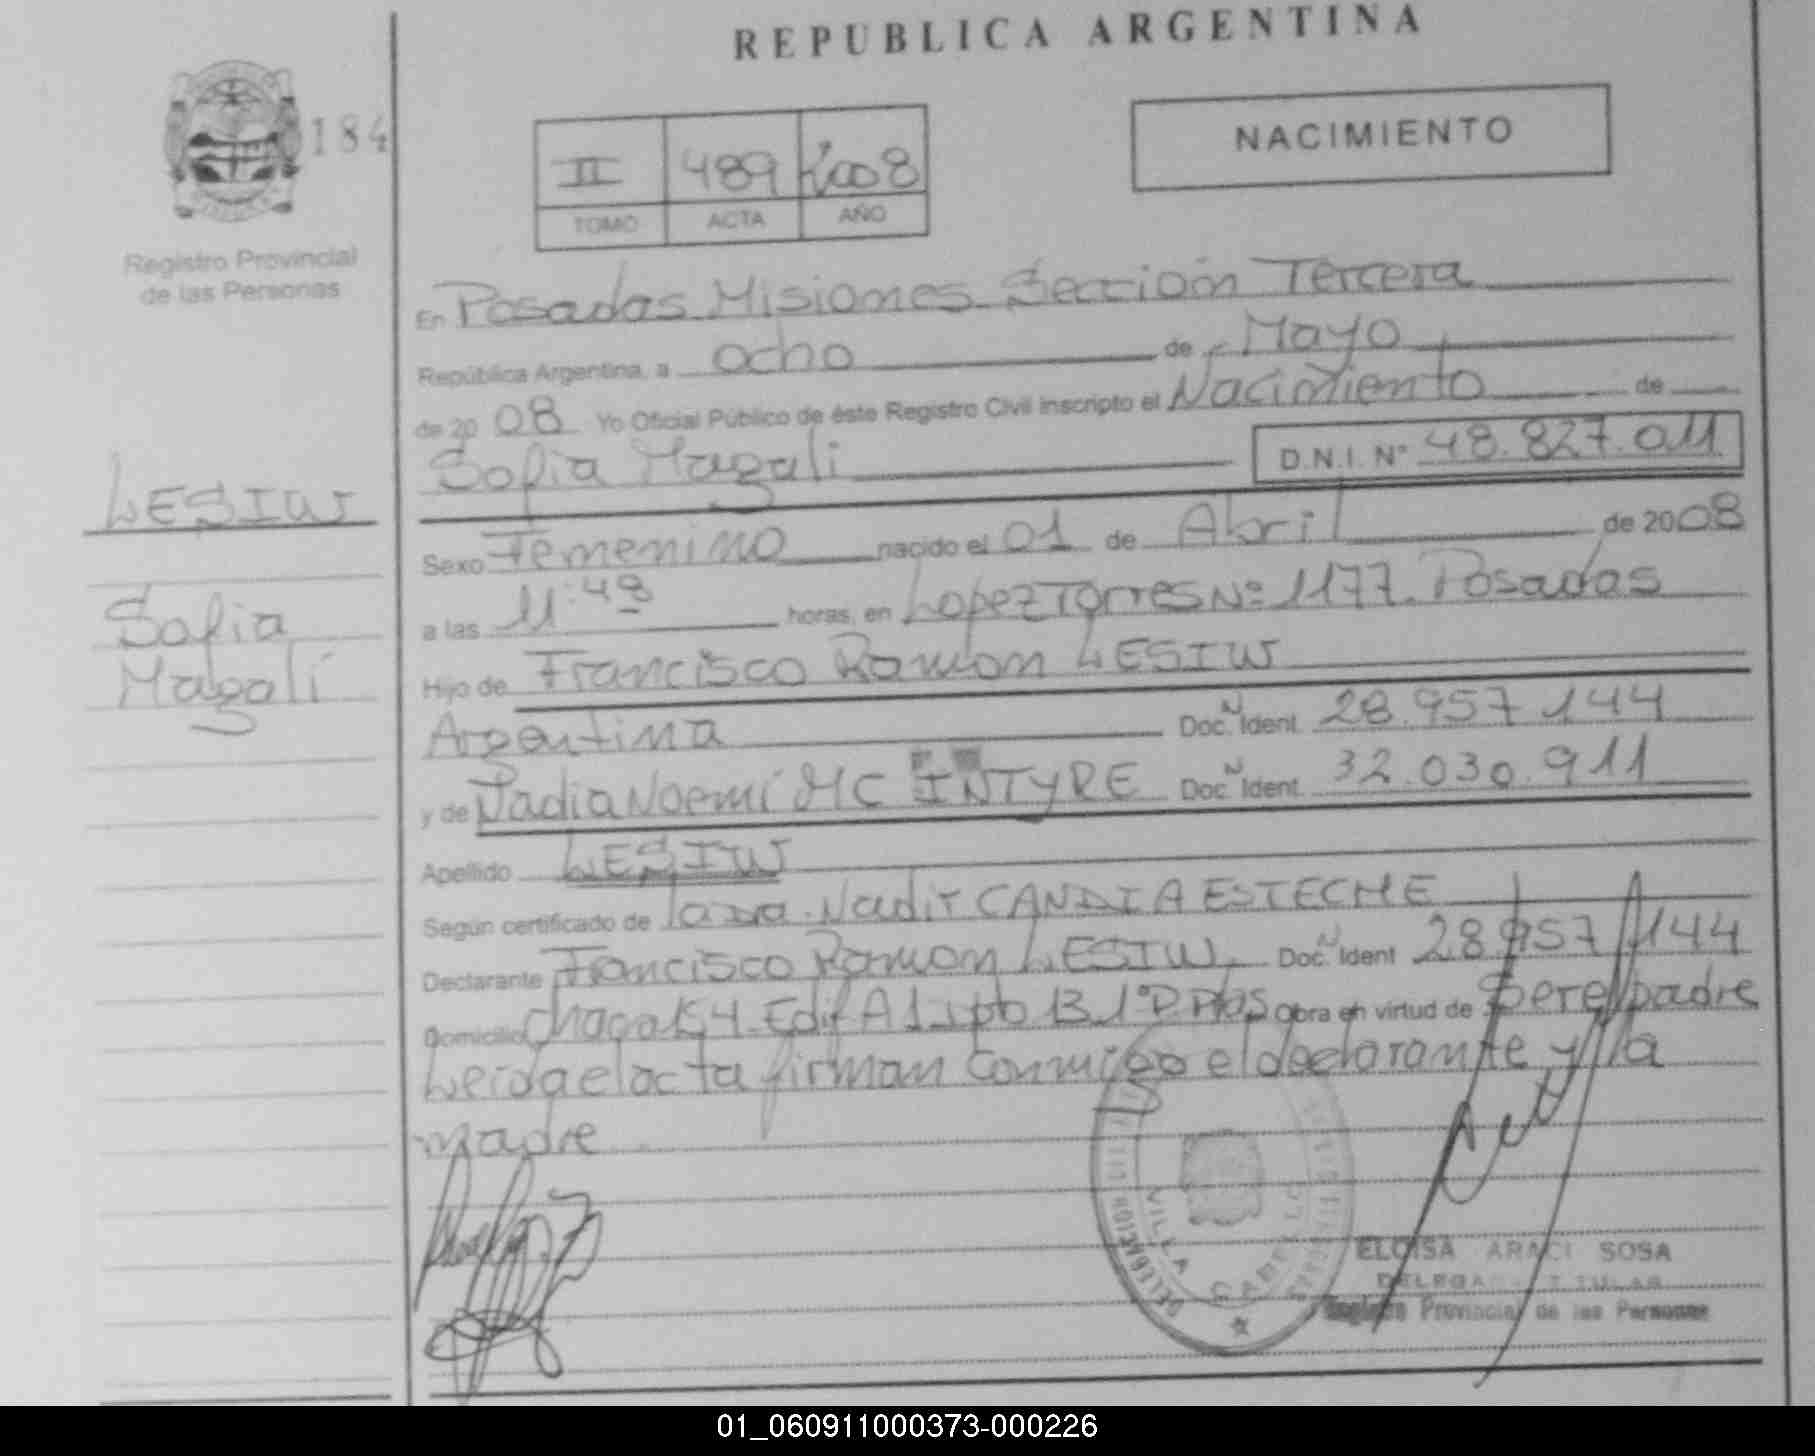 REPUBLICA ARGENTINA
184
II 489 2008
TOMO ACTA AÑO
NACIMIENTO
Registro Provincial
de las Personas
En Posadas Misiones Sección Tercera
República Argentina, a ocho de Mayo
de 2008 Yo Oficial Público de éste Registro Civil inscripto el Nacimiento de
Sofia Magali D.N.I. Nº 48.827.011
LESIW
Sofia
Magalí
Sexo Femenino nacido el 01 de Abril de 2008
a las 11:48 horas, en Lopez Torres Nº 1177. Posadas
Hijo de Francisco Ramon LESIW
Argentina Doc. N Ident. 28.957.144
y de Nadia Noemí MC INTYRE Doc. N Ident. 32.030.911
Apellido LESIW
Según certificado de la Dra. Nadir CANDIA ESTECHE
Declarante Francisco Ramon LESIW. Doc. N Ident 28.957.144
Domicilio Edif A1 13 1º D Obra en virtud de Ser el padre
Leida el acta firman conmigo el declarante y la
madre
VILLA CABELLO
ELOISA ARACI SOSA
DELEGADA TITULAR
Registro Provincial de las Personas
01_060911000373-000226